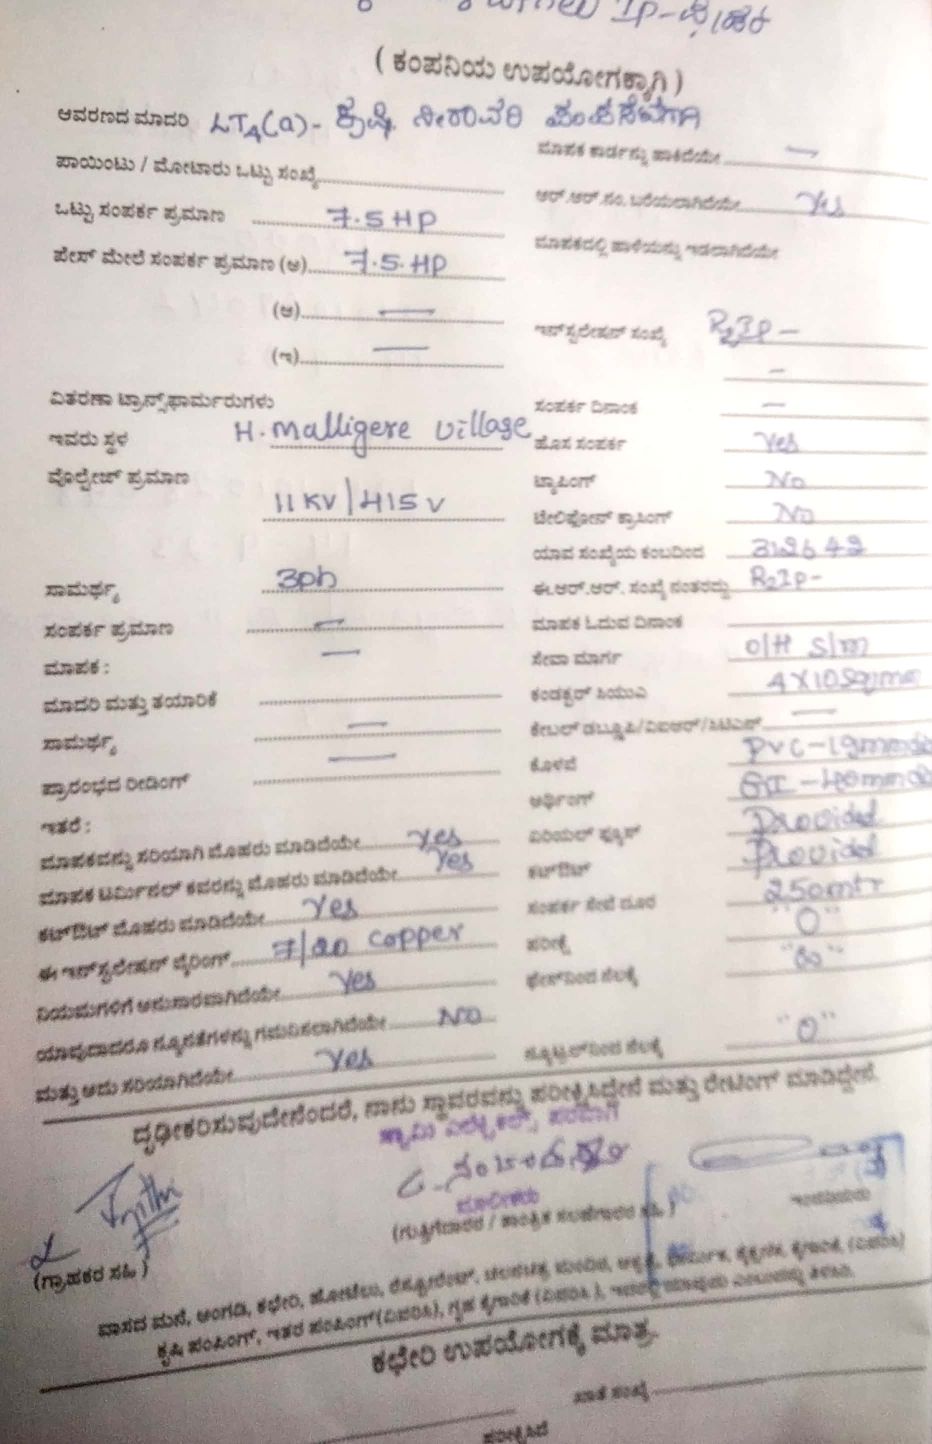 IP-
( ಕಂಪನಿಯ ಉಪಯೋಗಕ್ಕಾಗಿ )
ಆವರಣದ ಮಾದರಿ LT4(a)- ಕೃಷಿ ನೀರಾವರಿ ಪಂಪಸೆಟಗಾಗಿ
ಪಾಯಿಂಟು / ಮೋಟಾರು ಒಟ್ಟು ಸಂಖ್ಯೆ
ಒಟ್ಟು ಸಂಪರ್ಕ ಪ್ರಮಾಣ 7.5 HP
ಪೇಸ್ ಮೇಲೆ ಸಂಪರ್ಕ ಪ್ರಮಾಣ (ಅ) 7.5.HP
(ಆ) —
(ಇ) —
ವಿತರಣಾ ಟ್ರಾನ್ಸ್‌ಫಾರ್ಮರುಗಳು
ಇವರು ಸ್ಥಳ H.Malligere Village
ವೊಲ್ಟೇಜ್ ಪ್ರಮಾಣ
11KV/415 V
ಸಾಮರ್ಥ್ಯ 3ph
ಸಂಪರ್ಕ ಪ್ರಮಾಣ —
ಮಾಪಕ : —
ಮಾದರಿ ಮತ್ತು ತಯಾರಿಕೆ
ಸಾಮರ್ಥ್ಯ —
ಪ್ರಾರಂಭದ ರೀಡಿಂಗ್ —
ಇತರೆ :
ಮಾಪಕವನ್ನು ಸರಿಯಾಗಿ ಮೊಹರು ಮಾಡಿದೆಯೇ Yes
ಮಾಪಕ ಟರ್ಮಿನಲ್ ಕವರನ್ನು ಮೊಹರು ಮಾಡಿದೆಯೇ Yes
ಕಟ್‌ಔಟ್ ಮೊಹರು ಮಾಡಿದೆಯೇ Yes
ಈ ಇನ್‌ಸ್ಟಲೇಷನ್ ವೈರಿಂಗ್ 7/20 Copper
ನಿಯಮಗಳಿಗೆ ಅನುಸಾರವಾಗಿದೆಯೇ Yes
ಯಾವುದಾದರೂ ನ್ಯೂನತೆಗಳನ್ನು ಗಮನಿಸಲಾಗಿದೆಯೇ NO
ಮತ್ತು ಅದು ಸರಿಯಾಗಿದೆಯೇ Yes
ಮಾಪಕ ಕಾರ್ಡನ್ನು ಹಾಕಿದೆಯೇ —
ಆರ್.ಆರ್.ನಂ. ಬರೆಯಲಾಗಿದೆಯೇ Yes
ಮಾಪಕದಲ್ಲಿ ಹಾಳೆಯನ್ನು ಇಡಲಾಗಿದೆಯೇ
ಇನ್‌ಸ್ಟಲೇಷನ್ ಸಂಖ್ಯೆ R2IP-
—
ಸಂಪರ್ಕ ದಿನಾಂಕ —
ಹೊಸ ಸಂಪರ್ಕ Yes
ಟ್ಯಾಪಿಂಗ್ No
ಟೇಲಿಫೋನ್ ಕ್ರಾಸಿಂಗ್ No
ಯಾವ ಸಂಖ್ಯೆಯ ಕಂಬದಿಂದ
ಈ.ಆರ್.ಆರ್. ಸಂಖ್ಯೆ ನಂತರದ್ದು R2IP-
ಮಾಪಕ ಓದುವ ದಿನಾಂಕ
ಸೇವಾ ಮಾರ್ಗ O/H S/m
ಕಂಡಕ್ಟರ್ ಸಿಯುಎ 4X10Sqmm
—
ಕೊಳವೆ PVC-19mm
ಅರ್ಥಿಂಗ್ GI-40mm
ಏರಿಯಲ್ ಫ್ಯೂಸ್ Provided
ಕಟ್‌ಔಟ್ Provided
ಸಂಪರ್ಕ ಸೇವೆ ದೂರ 250mtr
ಪರೀಕ್ಷೆ "0"
ಫೇಸ್‌ನಿಂದ ನೆಲಕ್ಕೆ "∞"
ನ್ಯೂಟ್ರಲ್‌ನಿಂದ ನೆಲಕ್ಕೆ "0"
ದೃಢೀಕರಿಸುವುದೇನೆಂದರೆ, ನಾನು ಸ್ಥಾವರವನ್ನು ಪರೀಕ್ಷಿಸಿದ್ದೇನೆ ಮತ್ತು ರೇಟಿಂಗ್ ಮಾಡಿದ್ದೇನೆ
ಸ್ವಾಮಿ ಎಲೆಕ್ಟ್ರಿಕಲ್ಸ್ ಪರವಾಗಿ
ಮಾಲೀಕರು
(ಗ್ರಾಹಕರ ಸಹಿ)
(ಗುತ್ತಿಗೆದಾರರ / ತಾಂತ್ರಿಕ ಸಲಹೆಗಾರರ ಸಹಿ )
ವಾಸದ ಮನೆ, ಅಂಗಡಿ, ಕಛೇರಿ, ಹೋಟೆಲು, ರೆಸ್ಟೋರೆಂಟ್, ಚಲನಚಿತ್ರ ಮಂದಿರ, ಆಸ್ಪತ್ರೆ,
ಕೃಷಿ ಪಂಪಿಂಗ್, ಇತರ ಪಂಪಿಂಗ್ (ವಿವರಿಸಿ), ಗೃಹ ಕೈಗಾರಿಕೆ (ವಿವರಿಸಿ ),
ಕಛೇರಿ ಉಪಯೋಗಕ್ಕೆ ಮಾತ್ರ.
ಖಾತೆ ಸಂಖ್ಯೆ
ಪರೀಕ್ಷಿಸಿದೆ